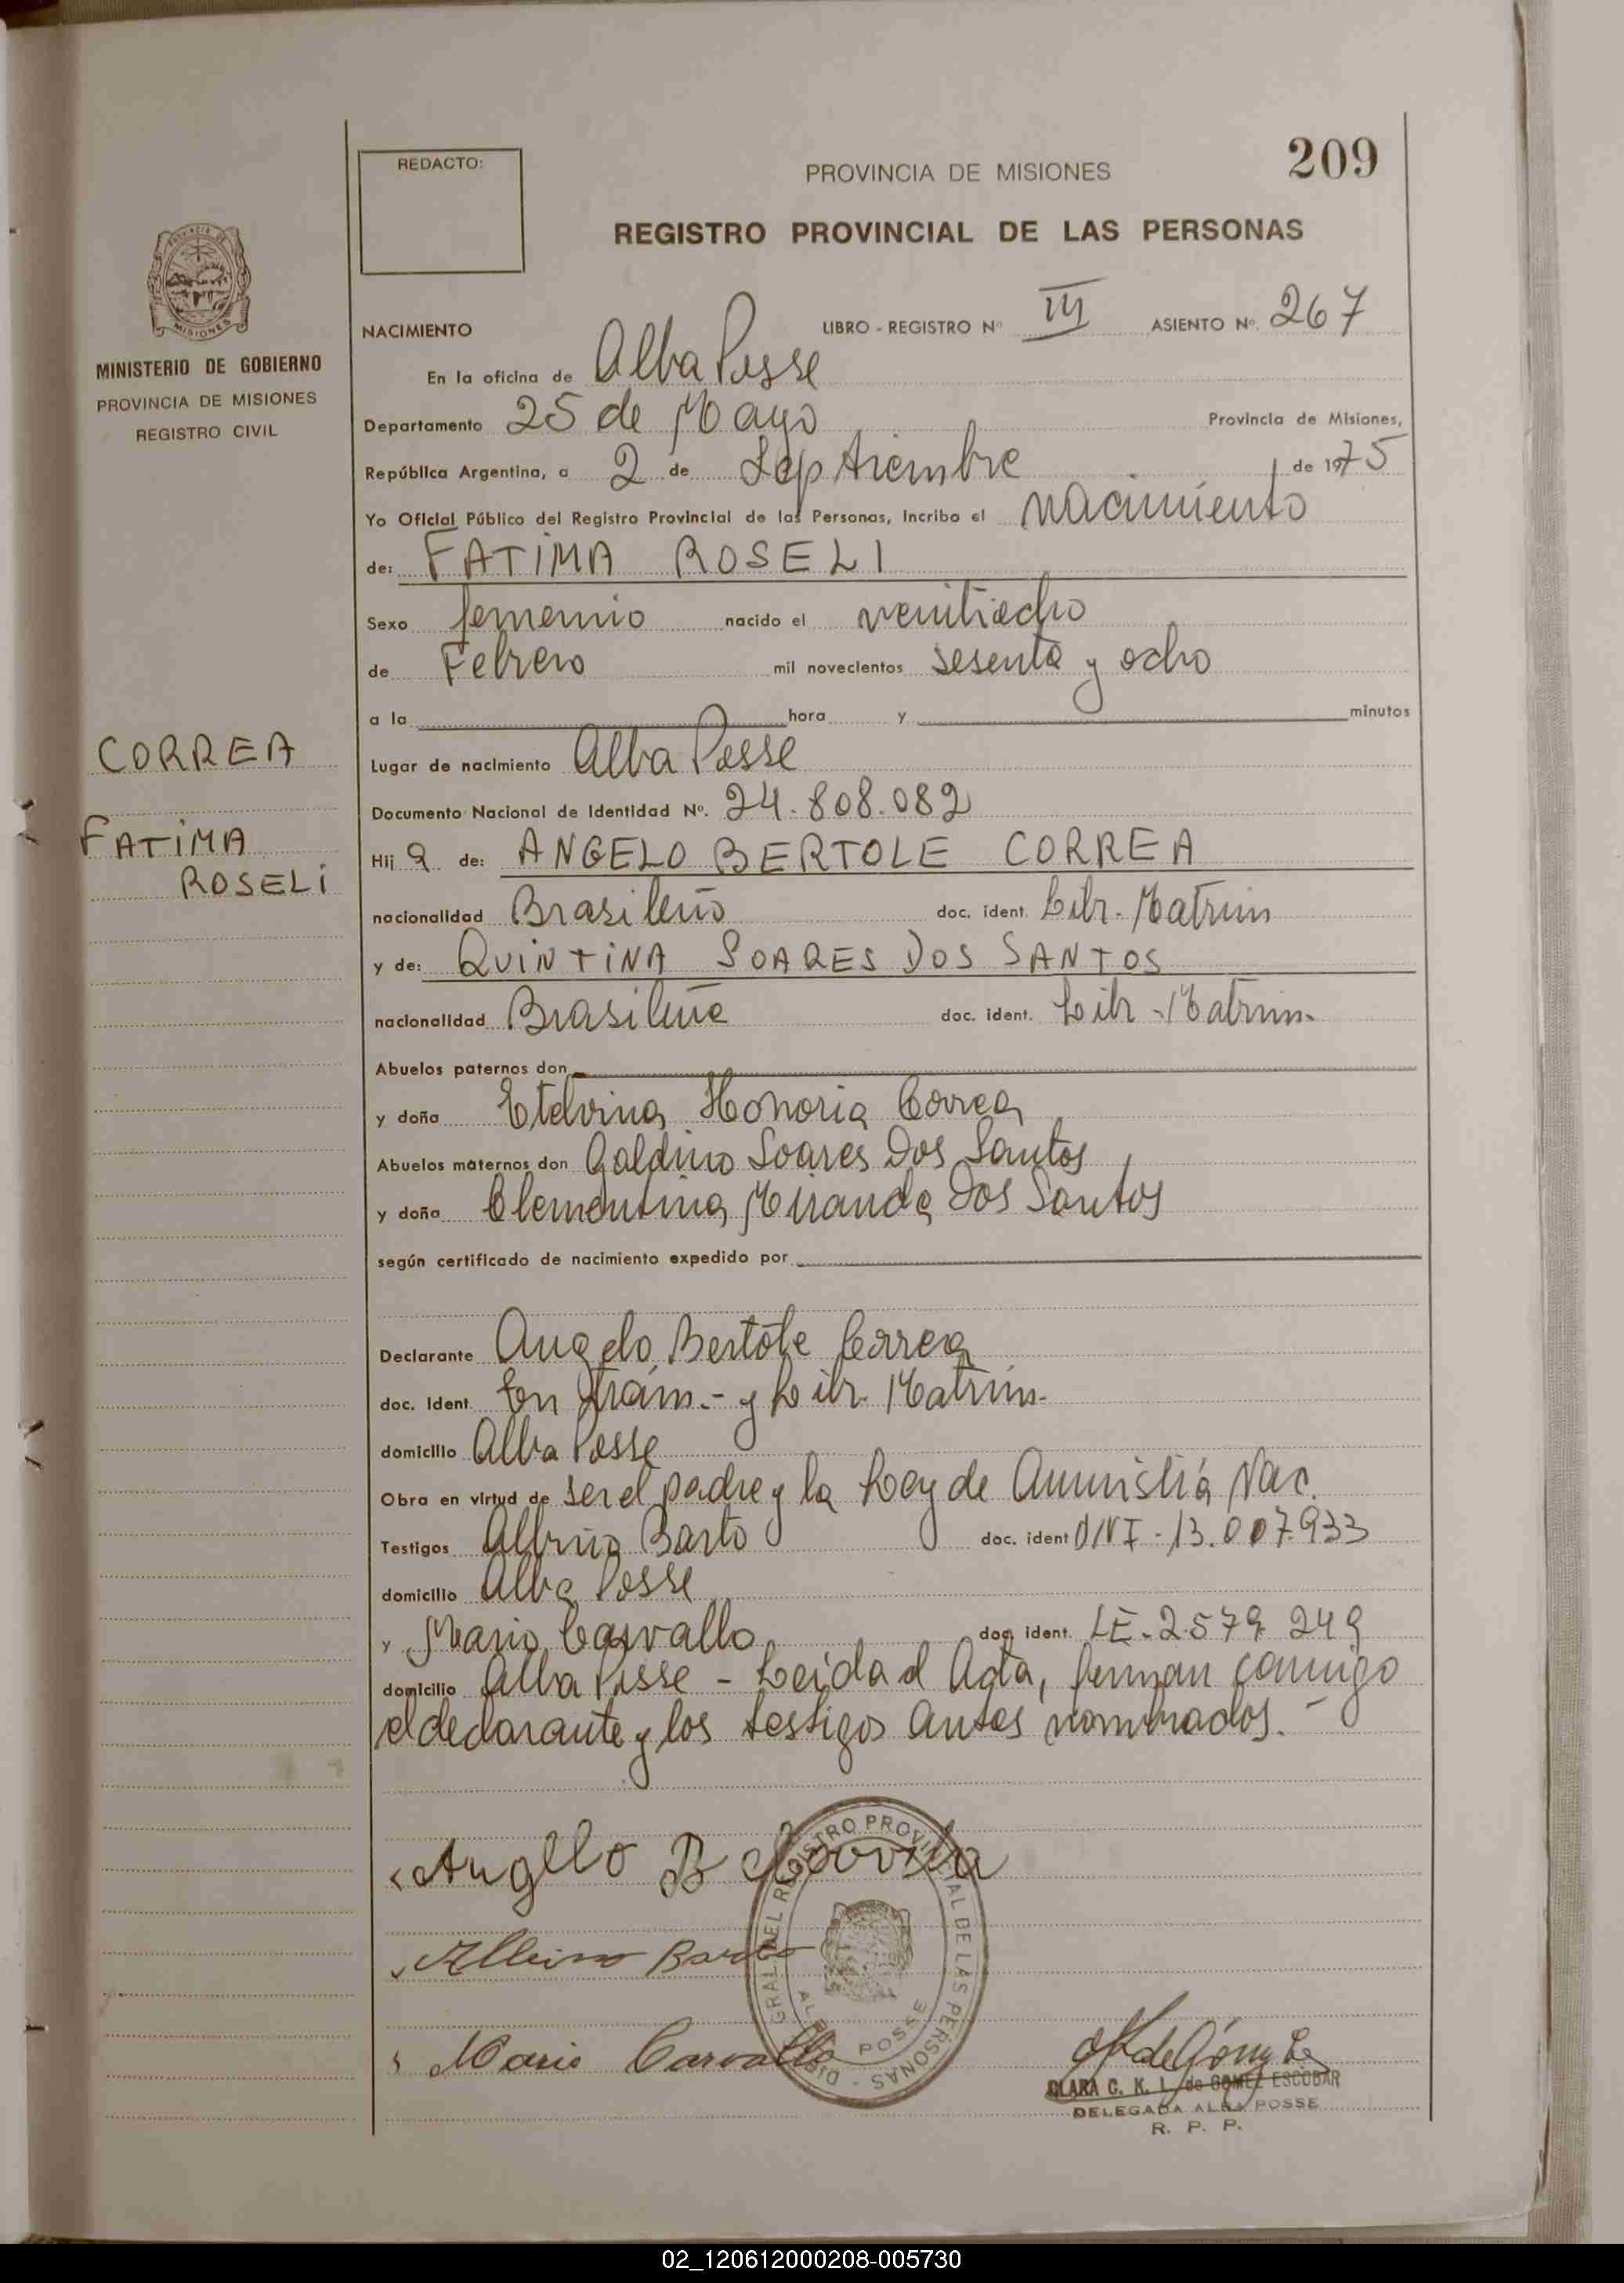 209
REDACTO:
PROVINCIA DE MISIONES
REGISTRO PROVINCIAL DE LAS PERSONAS
MISIONES
MINISTERIO DE GOBIERNO
PROVINCIA DE MISIONES
REGISTRO CIVIL
NACIMIENTO LIBRO - REGISTRO Nº III ASIENTO Nº. 267
En la oficina de Alba Posse
Departamento 25 de Mayo Provincia de Misiones,
República Argentina, a 2 de Septiembre de 1975
Yo Oficial Público del Registro Provincial de las Personas, incribo el nacimiento
de: FATIMA ROSELI
Sexo femenino nacido el veintiocho
de Febrero mil novecientos sesenta y ocho
a la hora y minutos
CORREA
FATIMA
ROSELI
Lugar de nacimiento Alba Posse
Documento Nacional de Identidad Nº. 24.808.082
Hij a de: ANGELO BERTOLE CORREA
nacionalidad Brasileño doc. ident. Libr. Matrim
y de: QUINTINA SOARES DOS SANTOS
nacionalidad Brasileña doc. ident. Libr - Matrim.
Abuelos paternos don
y doña Etelvina Honoria Correa
Abuelos maternos don Galdino Soares Dos Santos
y doña Clementina Miranda Dos Santos
según certificado de nacimiento expedido por
Declarante Angelo Bertole Correa
doc. ident. En trám.- y Libr. Matrim.
domicilio Alba Posse
Obra en virtud de ser el padre y la Ley de Amnistiá Nac.
Testigos Albino Barto doc. ident DNI - 13.007.933
domicilio Alba Posse
y Mario Carvallo doc. ident. LE - 2.579.249
domicilio Alba Posse - Leida el Acta, firman conmigo
el declarante y los testigos antes nombrados. -
Angelo B Correa
Albino Barto
Mario Carvallo
DIR. GRAL. DEL REGISTRO PROVINCIAL DE LAS PERSONAS -
ALBA POSSE
CLARA C. K. L. de GOMEZ ESCOBAR
DELEGADA ALBA POSSE
R. P. P.
02_120612000208-005730